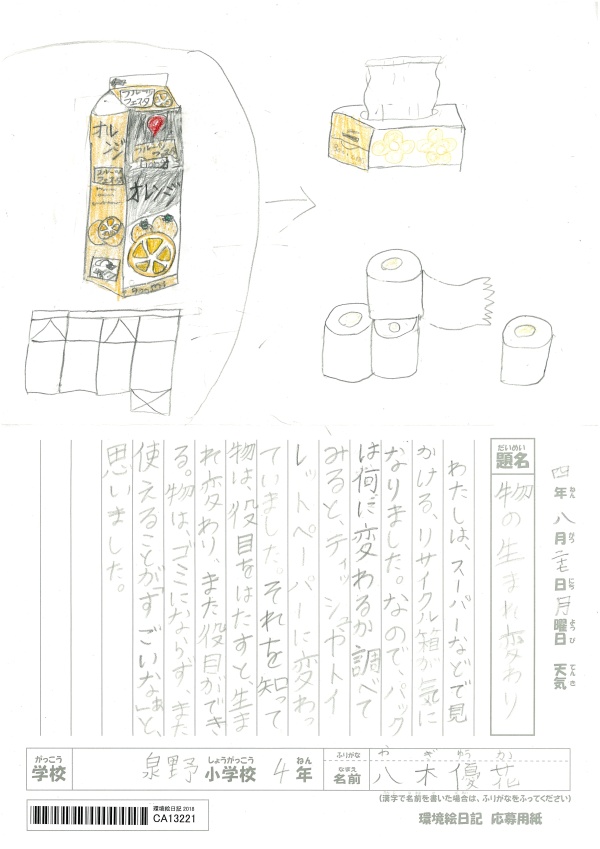 フルーツ
フェスタ
オレンジ
フルーツ
オレンジ
四年 八月 日 月曜日 天気
ねん がつ にち ようび てんき
だいめい
題名
物の生まれ変わり
わたしは、スーパーなどで見
かける、リサイクル箱が気に
なりました。なので、パック
は何に変わるか調べて
みると、ティッシュやトイ
レットペーパーに変わっ
ていました。それを知って
物は、役目をはたすと、生ま
れ変わり、また役目ができ
る。物は、ゴミにならず、また
使えることが「すごいなぁ」と、
思いました。
がっこう しょうがっこう ねん
学校 泉野 小学校 4年
ふりがな やぎ ゆうか
なまえ
名前 八木優花
(漢字で名前を書いた場合は、ふりがなをふってください)
環境絵日記 2018
CA13221
環境絵日記 応募用紙